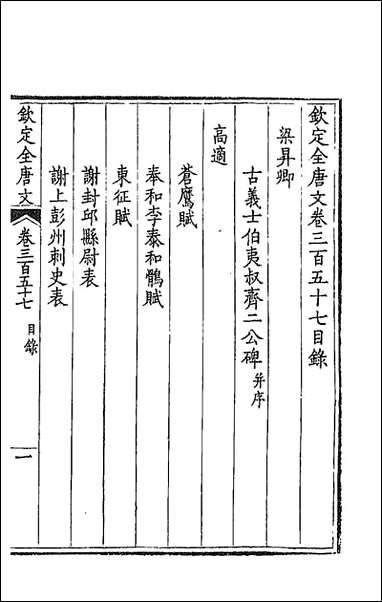 欽定全唐文卷三百五十七目錄
梁昇卿
古義士伯夷叔齊二公碑并序
高適
蒼鷹賦
奉和李泰和鶻賦
東征賦
謝封邱縣尉表
謝上彭州刺史表
欽定全唐文 卷三百五十七 目錄 一